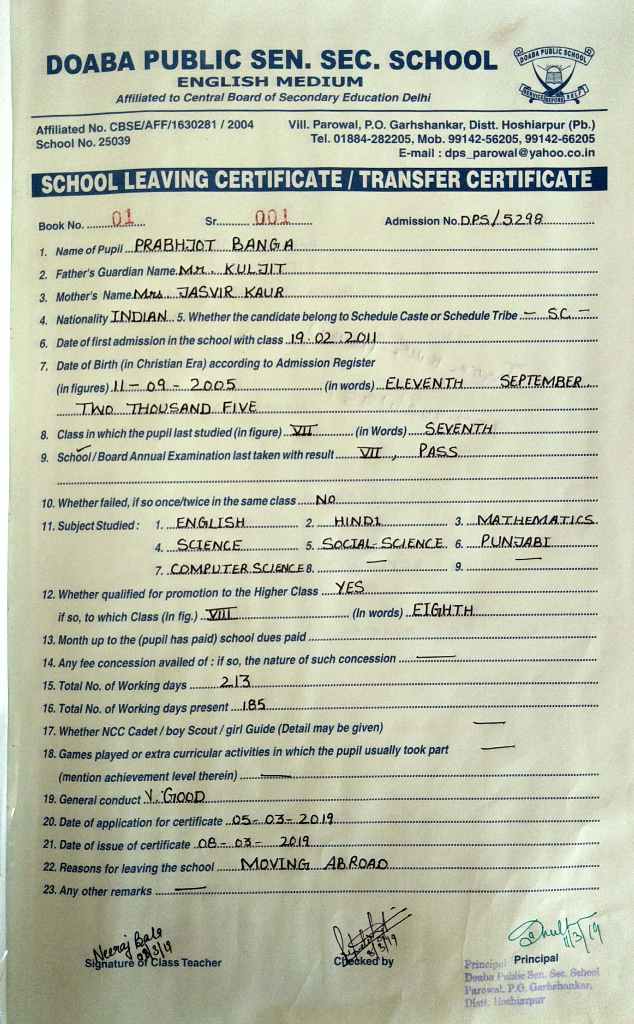 DOABA PUBLIC SEN. SEC. SCHOOL
ENGLISH MEDIUM
Affiliated to Central Board of Secondary Education Delhi
DOABA PUBLIC SCHOOL
SERVICE BEFORE SELF
Affiliated No. CBSE/AFF/1630281 / 2004
School No. 25039
Vill. Parowal, P.O. Garhshankar, Distt. Hoshiarpur (Pb.)
Tel. 01884-282205, Mob. 99142-56205, 99142-66205
E-mail : dps_parowal@yahoo.co.in
SCHOOL LEAVING CERTIFICATE / TRANSFER CERTIFICATE
Book No. 01 Sr. 001 Admission No. DPS/5298
1. Name of Pupil PRABHJOT BANGA
2. Father's Guardian Name Mr. KULJIT
3. Mother's Name Mrs JASVIR KAUR
4. Nationality INDIAN 5. Whether the candidate belong to Schedule Caste or Schedule Tribe - SC -
6. Date of first admission in the school with class 19.02.2011
7. Date of Birth (in Christian Era) according to Admission Register
(in figures) 11-09-2005 (in words) ELEVENTH SEPTEMBER
TWO THOUSAND FIVE
8. Class in which the pupil last studied (in figure) VII (in Words) SEVENTH
9. School / Board Annual Examination last taken with result VII, PASS
10. Whether failed, if so once/twice in the same class NO
11. Subject Studied : 1. ENGLISH 2. HINDI 3. MATHEMATICS
4. SCIENCE 5. SOCIAL-SCIENCE 6. PUNJABI
7. COMPUTER SCIENCE 8. — 9. —
12. Whether qualified for promotion to the Higher Class YES
if so, to which Class (In fig.) VIII (In words) EIGHTH
13. Month up to the (pupil has paid) school dues paid
14. Any fee concession availed of : if so, the nature of such concession —
15. Total No. of Working days 213
16. Total No. of Working days present 185
17. Whether NCC Cadet / boy Scout / girl Guide (Detail may be given) —
18. Games played or extra curricular activities in which the pupil usually took part —
(mention achievement level therein) —
19. General conduct V. GOOD
20. Date of application for certificate 05-03-2019
21. Date of issue of certificate 08-03-2019
22. Reasons for leaving the school MOVING ABROAD
23. Any other remarks —
Neeraj Bala
Signature of Class Teacher
Checked by
11/3/19
Principal
Principal
Doaba Public Sen. Sec. School
Parowal, P.O. Garhshankar,
Distt. Hoshiarpur